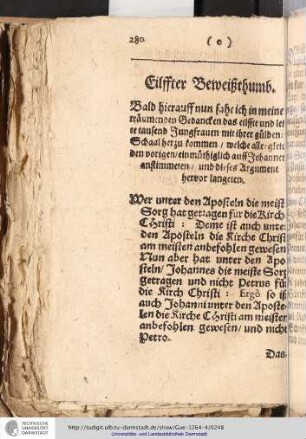 280. ( o )
Eilffter Beweißthumb.
Bald hierauff nun sahe ich in meine
träumenden Gedancken das eilffte und letz
te tausend Jungfrauen mit ihrer gülden
Schaal herzu kommen / welche alle / gleich
den vorigen / einmüthiglich auff Johannem
anstimmeten / und dieses Argument
hervor langeten.
Wer unter den Aposteln die meist
Sorg hat getragen für die Kirch
Christi : Deme ist auch unter
den Aposteln die Kirche Christi
am meisten anbefohlen gewesen
Nun aber hat unter den Apo-
steln / Johannes die meiste Sorg
getragen und nicht Petrus für
die Kirch Christi : Ergò so ist
auch Johanni unter den Aposte-
len die Kirche Christi am meisten
anbefohlen gewesen / und nicht
Petro.
Das
TECHNISCHE
UNIVERSITÄT
DARMSTADT
http://tudigit.ulb.tu-darmstadt.de/show/Gue-3264-4/0248
Universitäts- und Landesbibliothek Darmstadt